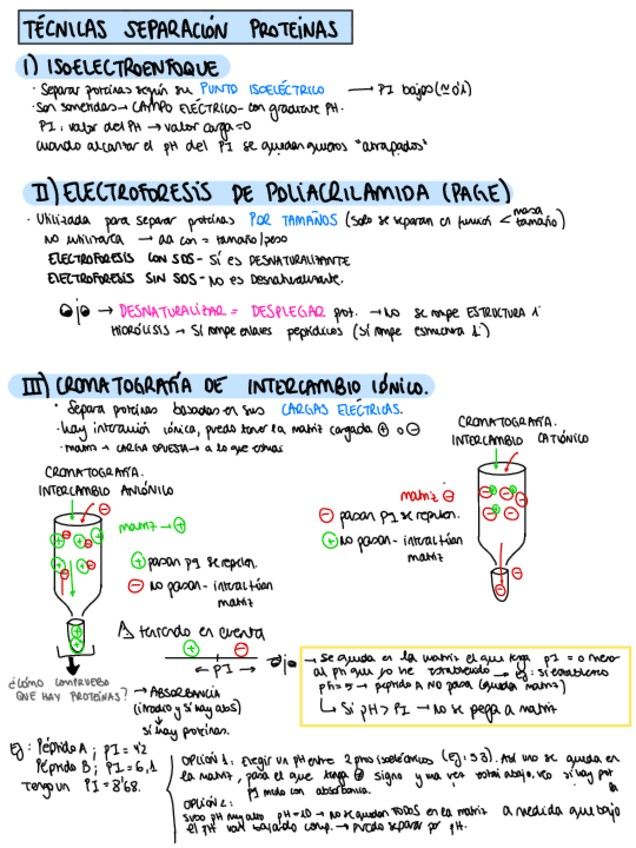 TÉCNICAS SEPARACIÓN PROTEÍNAS
I) ISOELECTROENFOQUE
· Separar proteínas según su PUNTO ISOELÉCTRICO → PI bajos (≈0'1)
· Son sometidas → CAMPO ELÉCTRICO - con gradiente PH.
PI: valor del PH → valor carga = 0
cuando alcanzan el pH del PI se quedan quietos "atrapados"
II) ELECTROFORESIS DE POLIACRILAMIDA (PAGE)
· Utilizada para separar proteínas POR TAMAÑOS (solo se separan en función < masa tamaño)
NO utilizarla → aa con = tamaño/peso
ELECTROFORESIS CON SDS - SÍ es DESNATURALIZANTE
ELECTROFORESIS SIN SDS - NO es Desnaturalizante.
Ojo → DESNATURALIZAR = DESPLEGAR prot. → NO se rompe ESTRUCTURA 1ª
HIDRÓLISIS → SÍ rompe enlaces peptídicos (sí rompe estructura 1ª)
III) CROMATOGRAFÍA DE INTERCAMBIO IÓNICO.
· Separa proteínas basadas en sus CARGAS ELÉCTRICAS.
· hay interacción iónica, puedo tener la matriz cargada ⊕ o ⊖
· matriz → CARGA OPUESTA → a lo que
CROMATOGRAFÍA.
INTERCAMBIO CATIÓNICO
CROMATOGRAFÍA.
INTERCAMBIO ANIÓNICO
matriz ⊖
⊖ pasan pq se repelen.
⊕ no pasan - interactúan
matriz
matriz → ⊕
⊕ pasan pq se repelen.
⊖ no pasan - interactúan
matriz
⚠ teniendo en cuenta
⊕ ⊖
← PI →
Ojo
→ Se queda en la matriz el que tenga pI = o menor
al ph que yo he establecido → eg: si establezco
pH=5 → péptido A NO pasa (queda matriz)
↳ Si pH > PI → No se pega a matriz
¿CÓMO COMPRUEBO
QUE HAY PROTEÍNAS? → ABSORBANCIA
(irradio y si hay abs)
↓
sí hay proteínas.
Eg: Péptido A; pI = 4'2
Péptido B; PI = 6,1
Tengo un PI = 8'68.
OPCIÓN 1: Elegir un pH entre 2 ptos isoeléctricos (Eg: 5'3). Así uno se queda en
la matriz, pasa el que tenga ⊕ signo y una vez estai abajo, veo si hay por la
PI mido con absorbancia.
OPCIÓN 2:
Subo pH muy alto pH=10 → no se quedan TODOS en la matriz a medida que bajo
el pH van bajando comp. → puedo separar por pH.